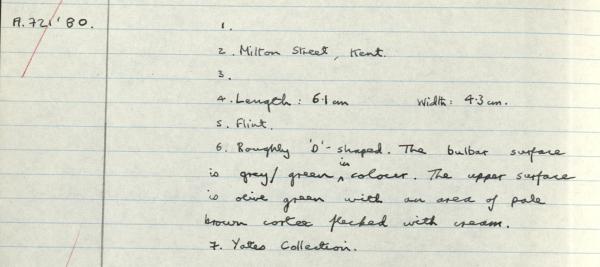 A.721'80.
1.
2. Milton Street, Kent.
3.
4. Length: 6.1 cm Width: 4.3 cm.
5. Flint.
6. Roughly 'D'-shaped. The bulbar surface
is grey/green in colour. The upper surface
is olive green with an area of pale
brown cortex flecked with cream.
7. Yates Collection.